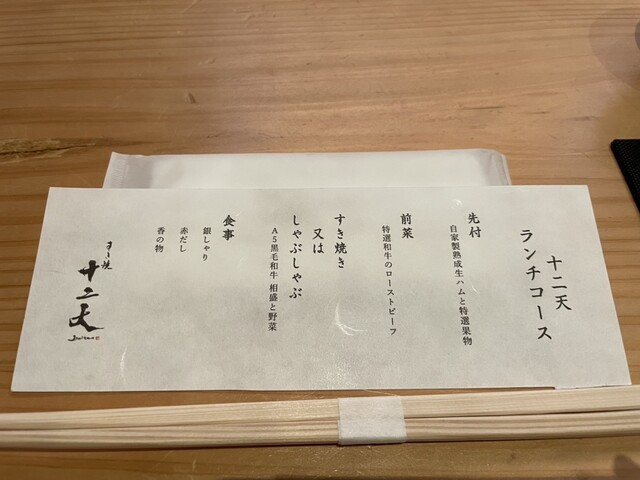 十二天
ランチコース
先付
自家製熟成生ハムと特選果物
前菜
特選和牛のローストビーフ
すき焼き
又は
しゃぶしゃぶ
A5黒毛和牛 相盛と野菜
食事
銀しゃり
赤だし
香の物
すき焼
十二天